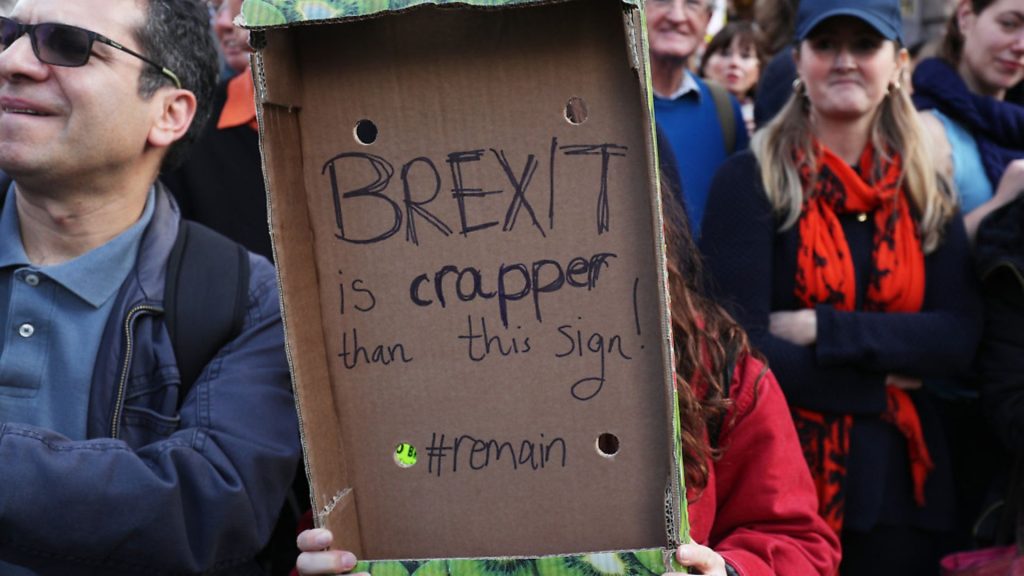 BREXIT
is crapper
than this sign!
#remain